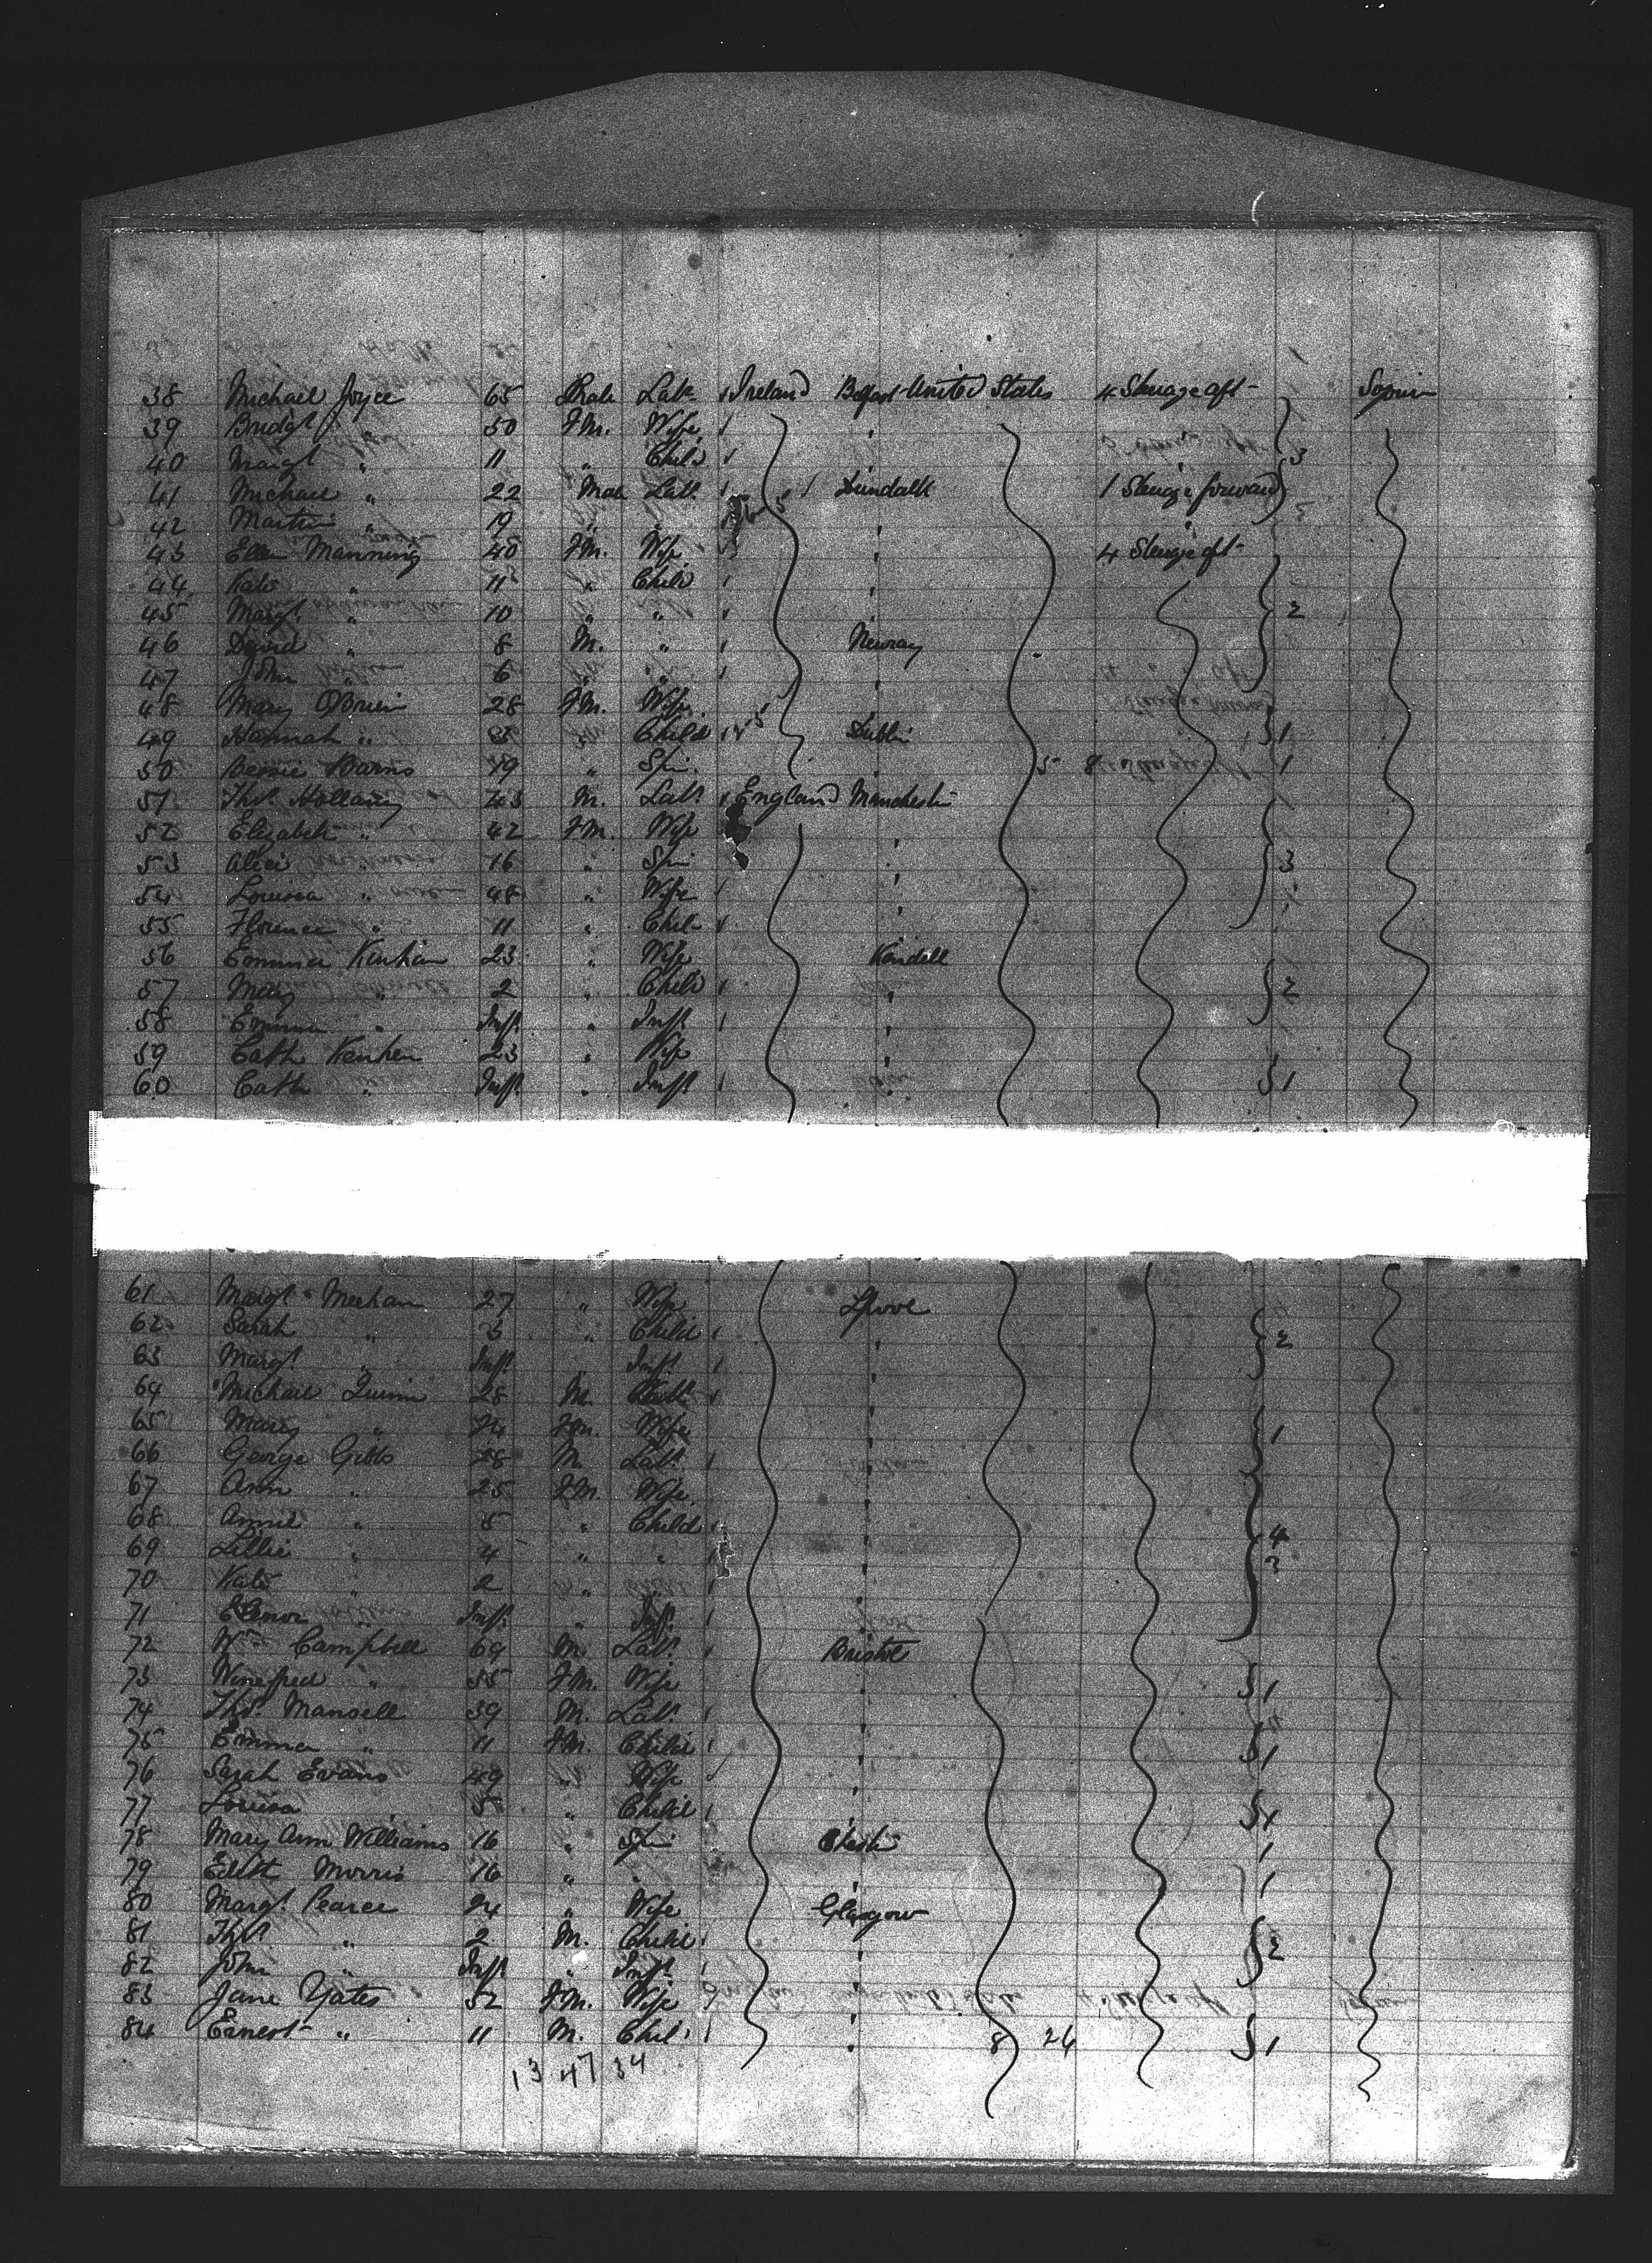 38 Michael Joyce 65 Male Labr Ireland Belfast United States 4 Steerage aft Sojourn
39 Bridgt " 50 FM. Wife "
40 Margt " 11 " Child " 3
41 Michael " 22 Male Labr 1 Dundalk 1 Steerage forward
42 Martin " 19 " " "
43 Ellen Manning 40 FM. Wife " 4 Steerage aft
44 Kate " 11 " Child "
45 Margt " 10 " " " 2
46 David " 8 M. " Newray
47 John " 6 " " "
48 Mary OBrien 28 FM. Wife "
49 Hannah " 3 " Child Dublin 1
50 Bessie Barns 19 " Spin " 5 8 1
51 Thos Hollany 43 M. Labr England Manchester
52 Elizabeth " 42 FM. Wife "
53 Alice " 16 " Spin " 3
54 Louisa " 48 " Wife "
55 Florence " 11 " Child "
56 Emma 23 " Wife Kendall
57 Mary " 2 " Child " 2
58 Emma " Inft " Inft "
59 Cath 23 " Wife "
60 Cath " Inft " Inft " 1
61 Margt Meehan 27 " Wife Lpool
62 Sarah " 3 " Child " 2
63 Margt " Inft " Inft "
64 Michael Quinn 28 M. Labr "
65 Mary " 24 FM. Wife " 1
66 George Gibbs 28 M Labr "
67 Ann " 25 FM. Wife "
68 Annie " 5 " Child " 4
69 Lillie " 4 " " "
70 Kate " 2 " " "
71 Elenor " Inft " Inft "
72 Wm Campbell 69 M. Labr Bristol
73 Winefred " 55 FM. Wife " 1
74 Thos. Mansell 39 M. Labr "
75 Emma " 11 FM. Child " 1
76 Sarah Evans 49 " Wife "
77 Louisa 5 " Child " 1
78 Mary Ann Williams 16 " Spin Chester 1
79 Edith Morris 16 " " " 1
80 Margt. Pearce 24 " Wife Glasgow
81 Thos " 2 M. Child " 2
82 John " Inft " Inft "
83 Jane Yates 52 FM. Wife "
84 Ernest " 11 M. Chil " 8 26 1
13 47 34